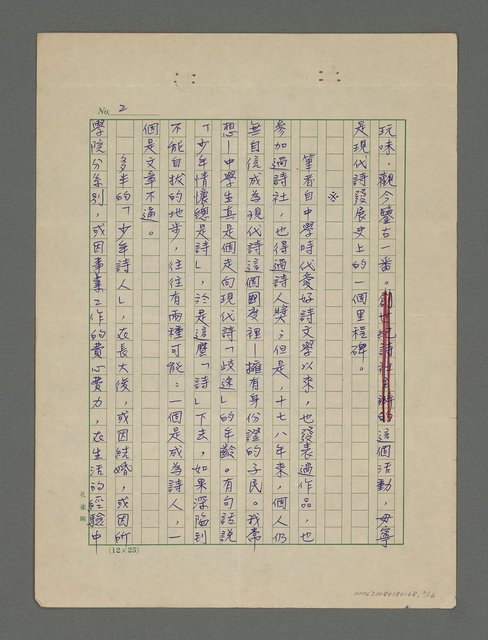 No. 2
玩味、觀今鑒古一番。創世紀詩社主辦的這個活動，毋寧
是現代詩發展史上的一個里程碑。
※
筆者自中學時代愛好詩文學以來，也發表過作品，也
參加過詩社，也得過詩人獎；但是，十七八年來，個人仍
無自信成為現代詩這個國度裡—擁有身份證的子民。我常
想—中學生真是個走向現代詩「歧途」的年齡。有句話說
「少年情懷總是詩」，於是這麼「詩」下去，如果深陷到
不能自拔的地步，往往有兩種可能：一個是成為詩人，一
個是文章不通。
多半的「少年詩人」，在長大後，或因結婚，或因所
學院分系別，或因事業工作的費心費力，在生活的經驗中
孔雀牌
(12×25)